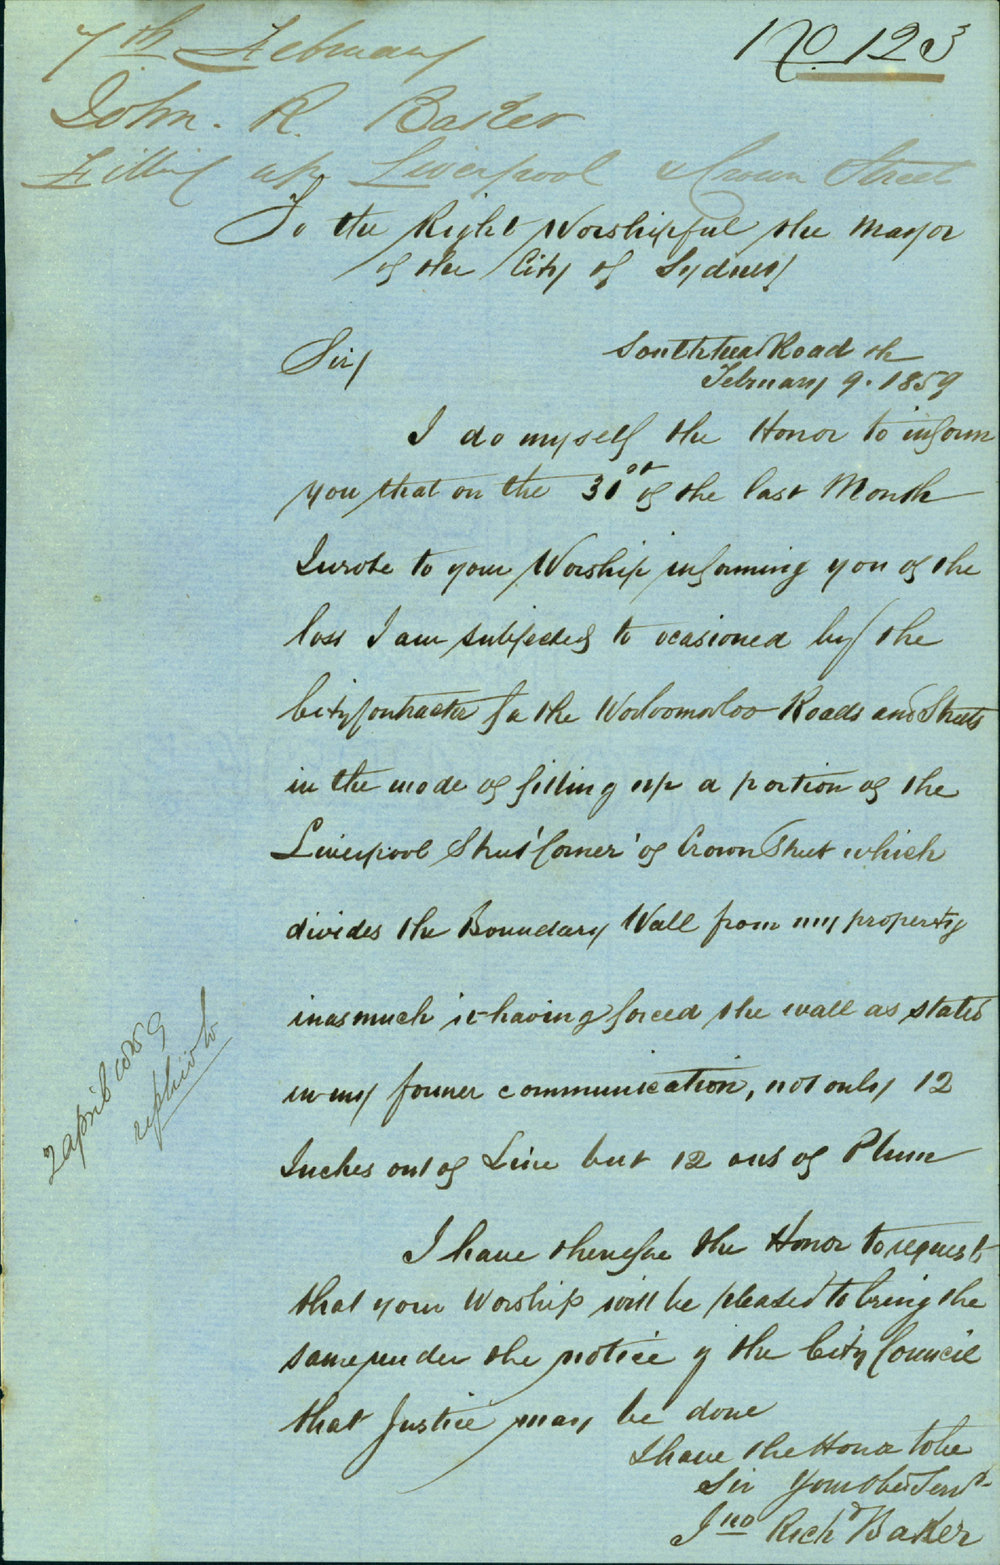 No 123
7th February
John. R. Baker
Filling up Liverpool & Crown Street
To the Right Worshipful the Mayor
of the City of Sydney
Sir,
South Head Road
February 9. 1859
I do myself the Honor to inform
you that on the 31st of the last Month
I wrote to your Worship informing you of the
loss I am subjected to ocasioned by the
City Contracter for the Wooloomooloo Roads and Streets
in the mode of filling up a portion of the
Liverpool Street 'Corner' of Crown Street which
divides the Boundary Wall from my property
inasmuch it having forced the wall as stated
in my former communication, not only 12
Inches out of Line but 12 out of Plum
I have therefore the Honor to request
that your Worship will be pleased to bring the
same under the notice of the City Council
that Justice may be done
I have the Honor to be
Sir Your Obed Servt
Jno Richd Baker
2 april 1859
replied to